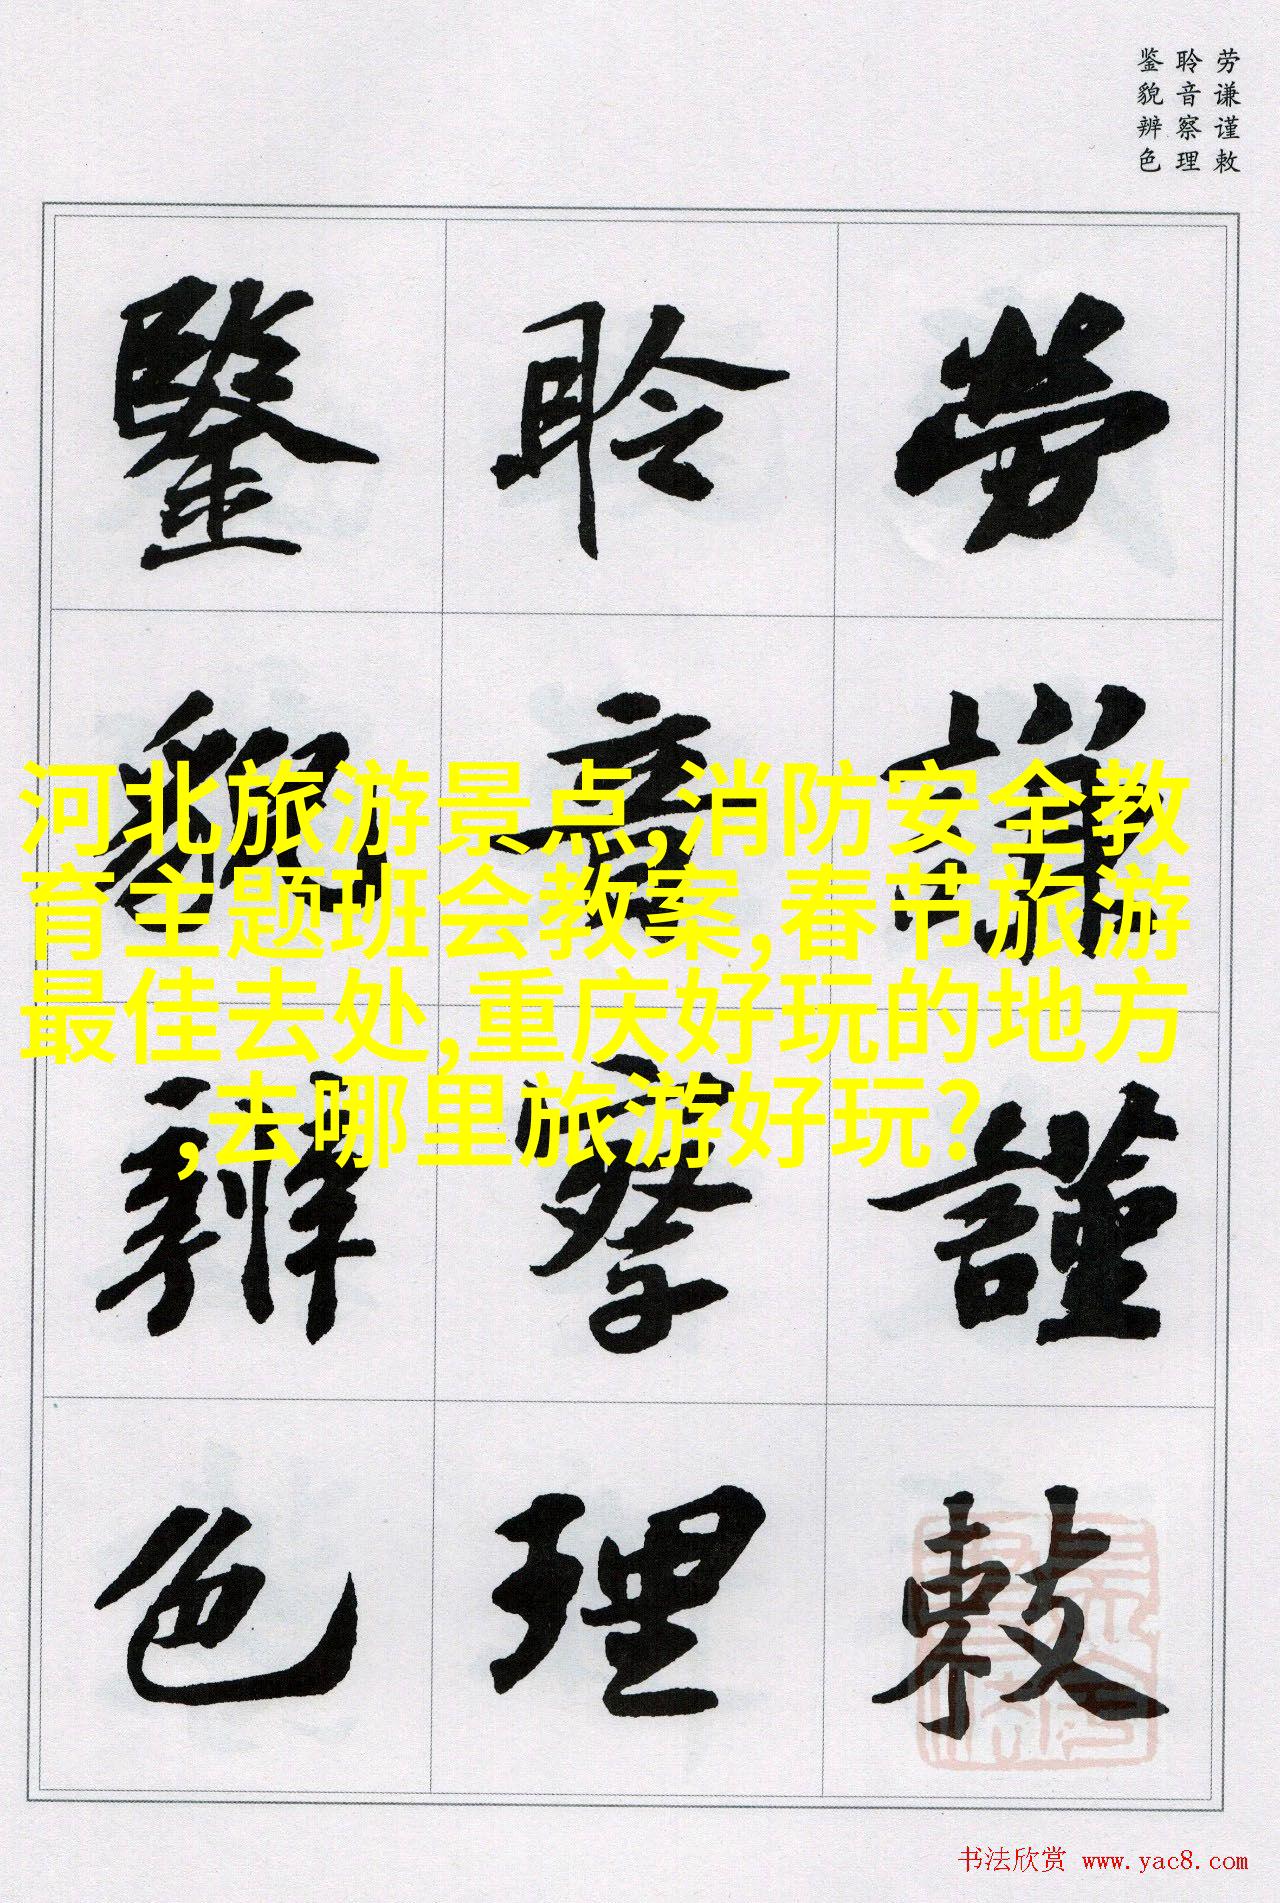 劳谦谨敕
聆音察理
鉴貌辨色
勞謙謹敕
聆音察理
鑒貌辨色
河北旅游景点,消防安全教
育主题班会教案,春节旅游
最佳去处,重庆好玩的地方
,去哪里旅游好玩?
书法欣赏 www.yac8.com